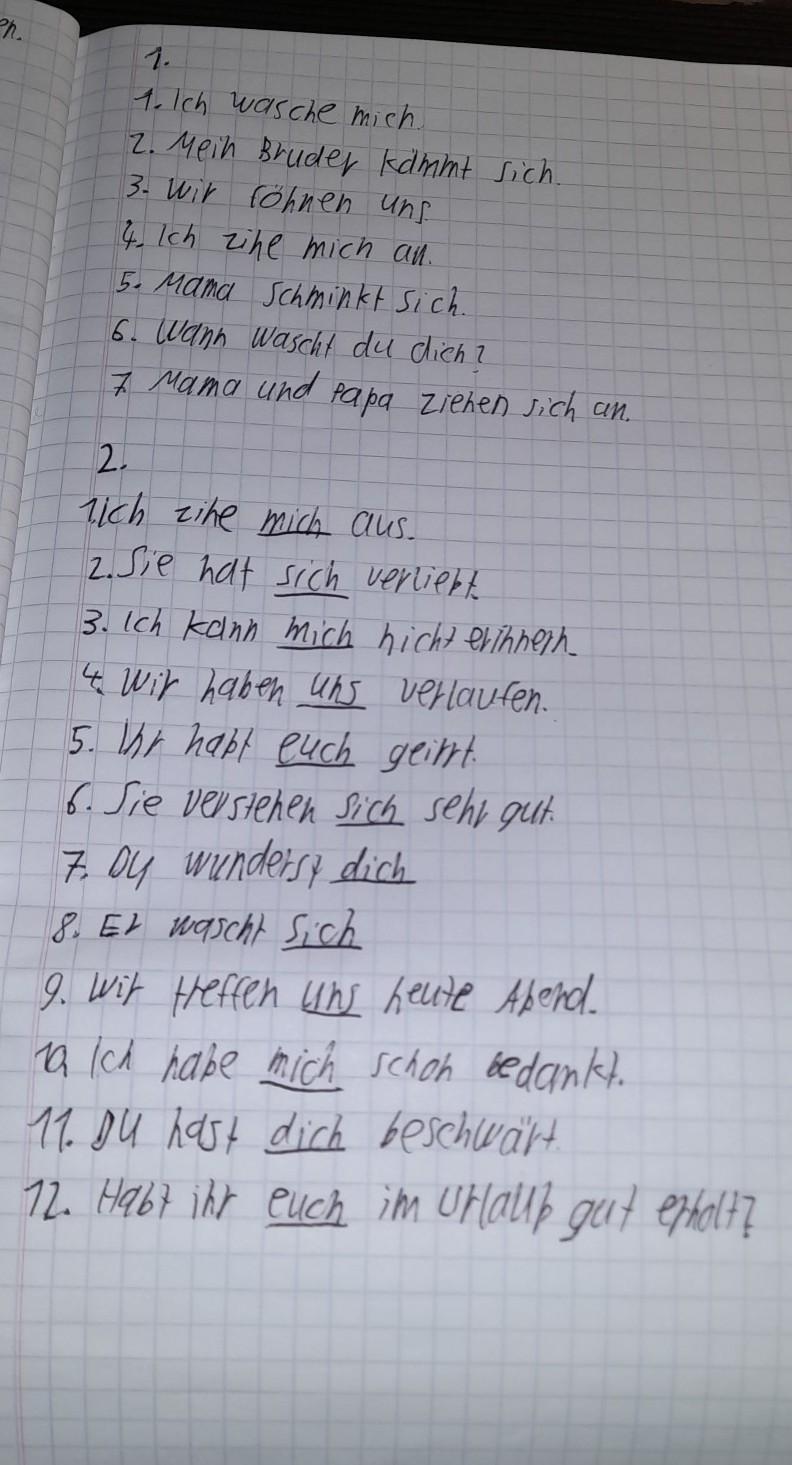 en.
1.
1. Ich wasche mich.
2. Mein Bruder kämmt sich.
3. Wir föhnen uns
4. Ich zihe mich an.
5. Mama schminkt sich.
6. Wann wascht du dich?
7. Mama und Papa ziehen sich an.
2.
1. Ich zihe mich aus.
2. Sie hat sich verliebt.
3. Ich kann mich nicht erinnern.
4. Wir haben uns verlaufen.
5. Ihr habt euch geirrt.
6. Sie verstehen sich sehr gut.
7. Du wunderst dich
8. Er wascht sich
9. Wir treffen uns heute Abend.
10. Ich habe mich schon bedankt.
11. Du hast dich beschwärt.
12. Habt ihr euch im Urlaub gut erholt?